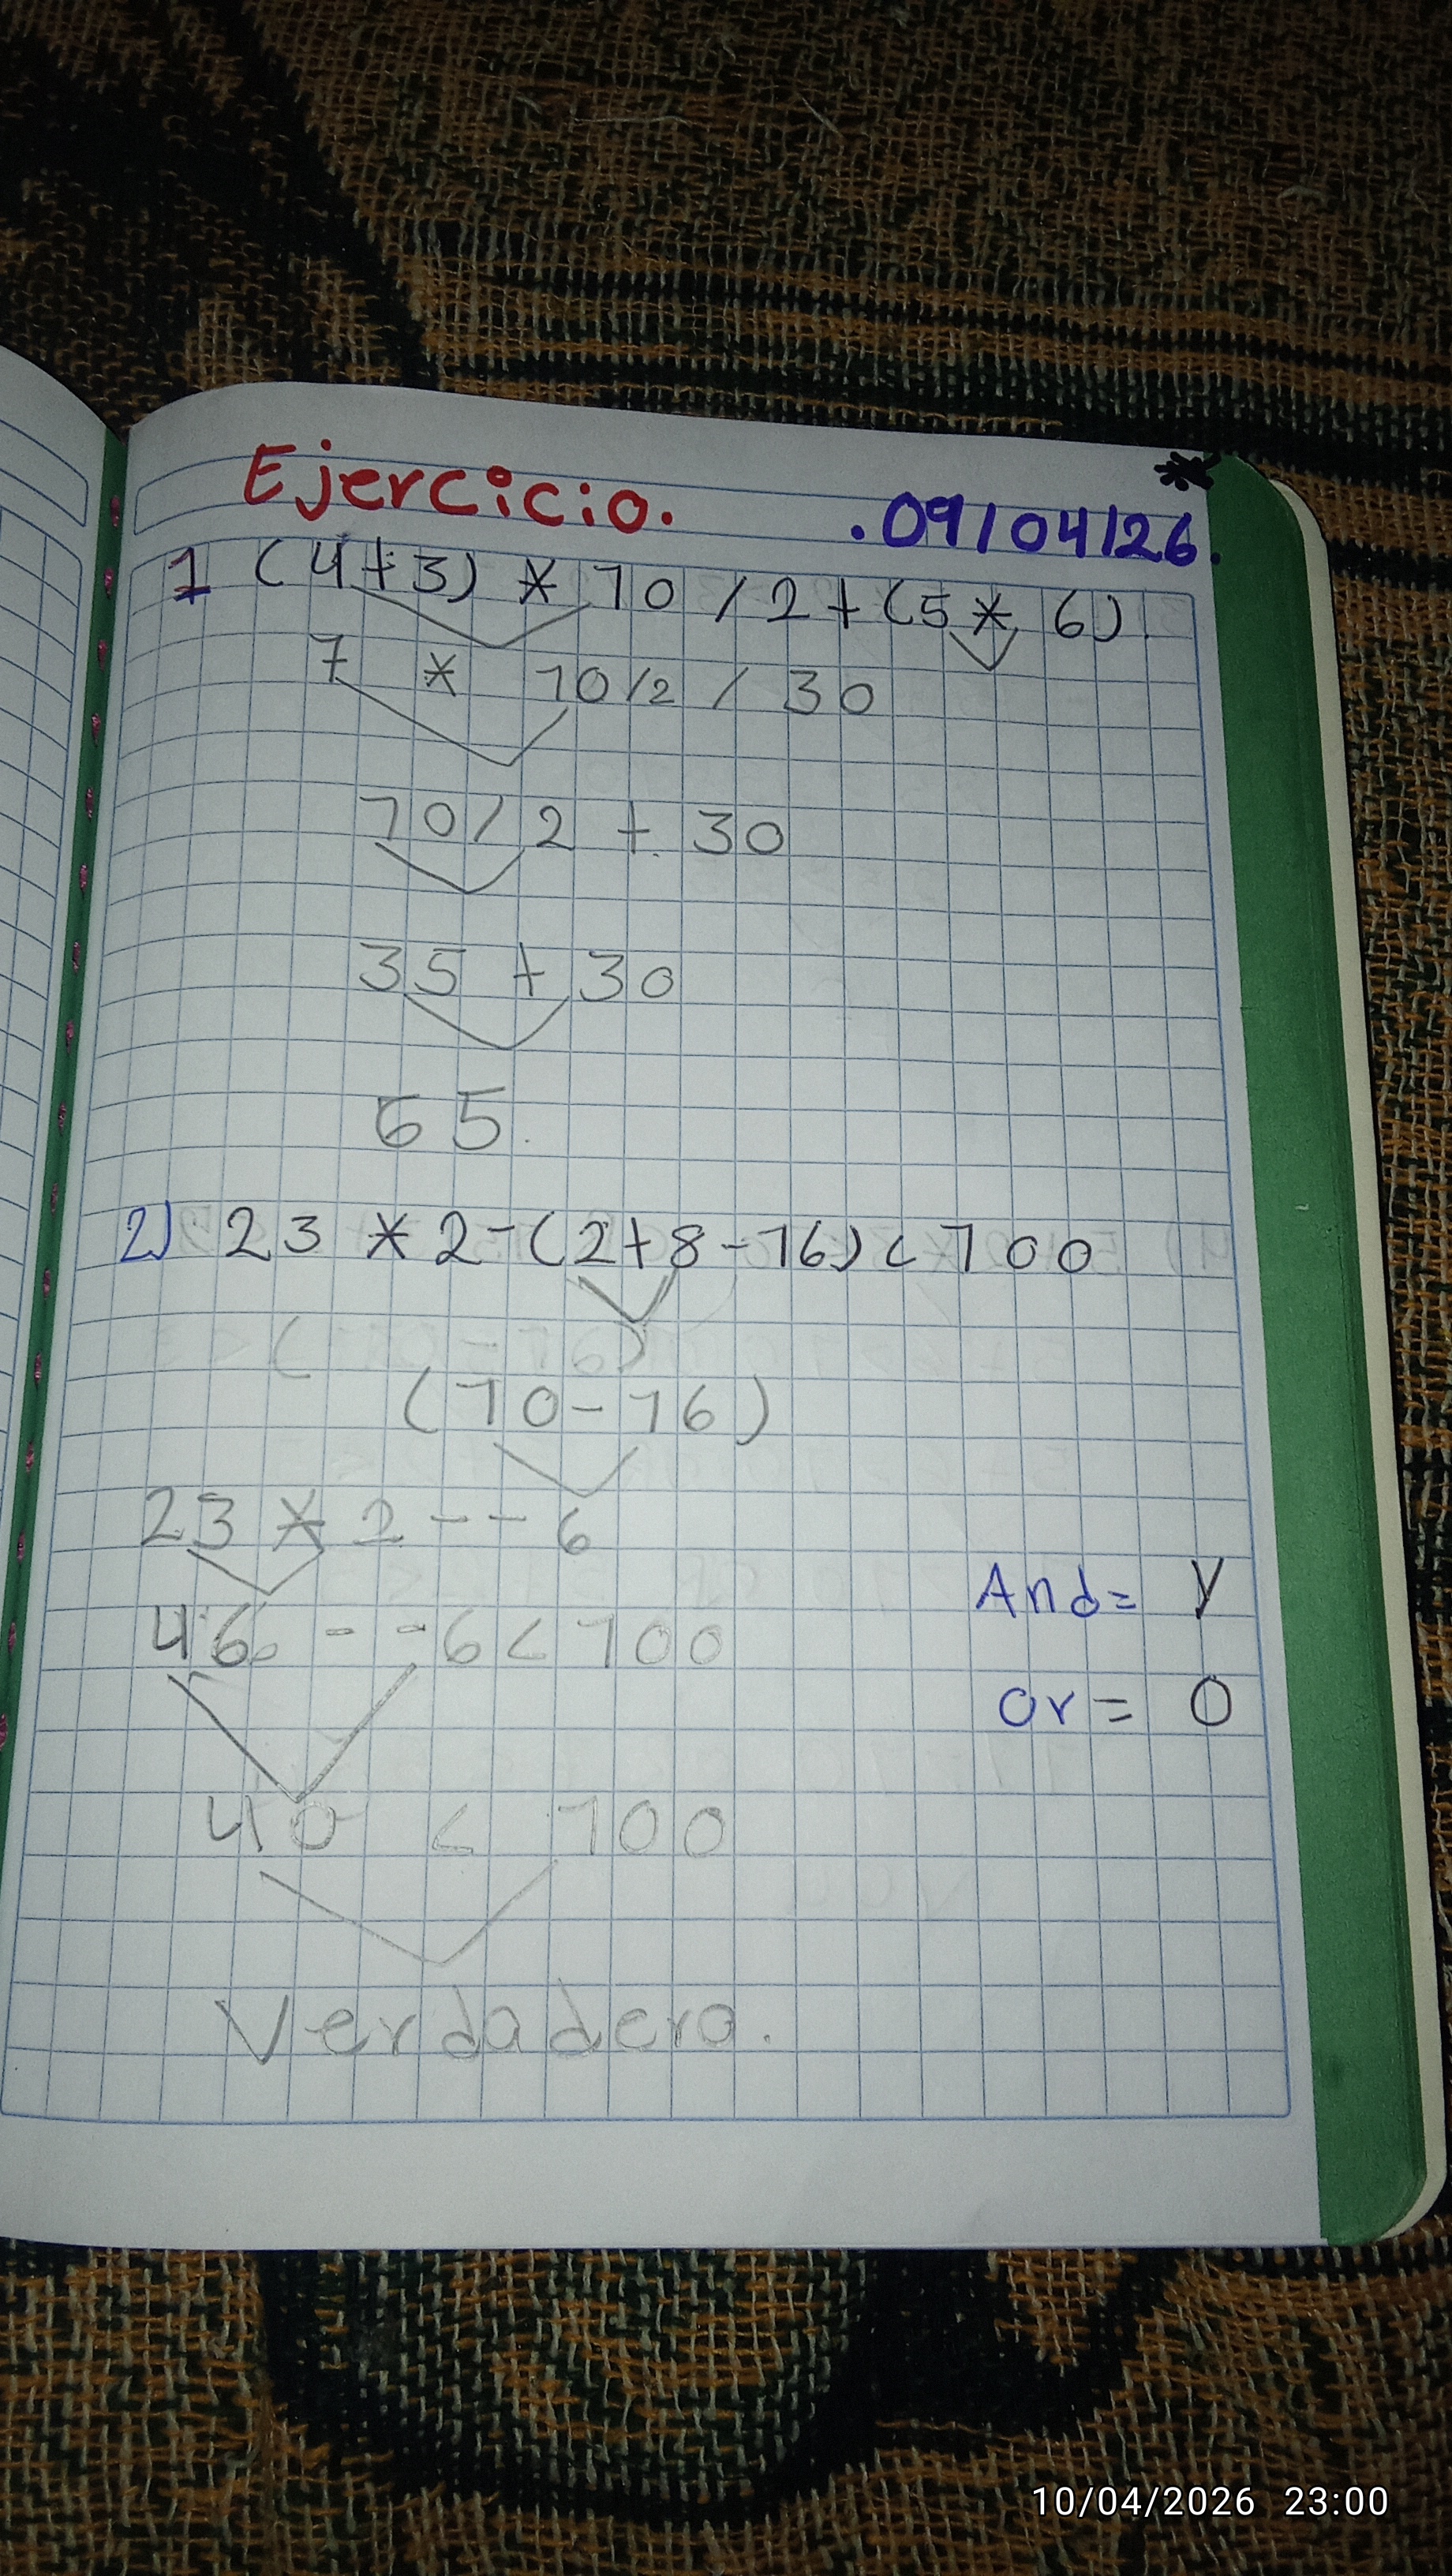 Ejercicio.
.09/04/26.
1 (4+3) * 10 / 2 + (5 * 6).
7 * 10/2 / 30
70/2 + 30
35 + 30
65.
2) 23 * 2-(2+8-16) < 100
(10-16)
23 * 2 - - 6
46 - - 6 < 100
And = Y
or = O
40 < 100
Verdadero.
10/04/2026 23:00